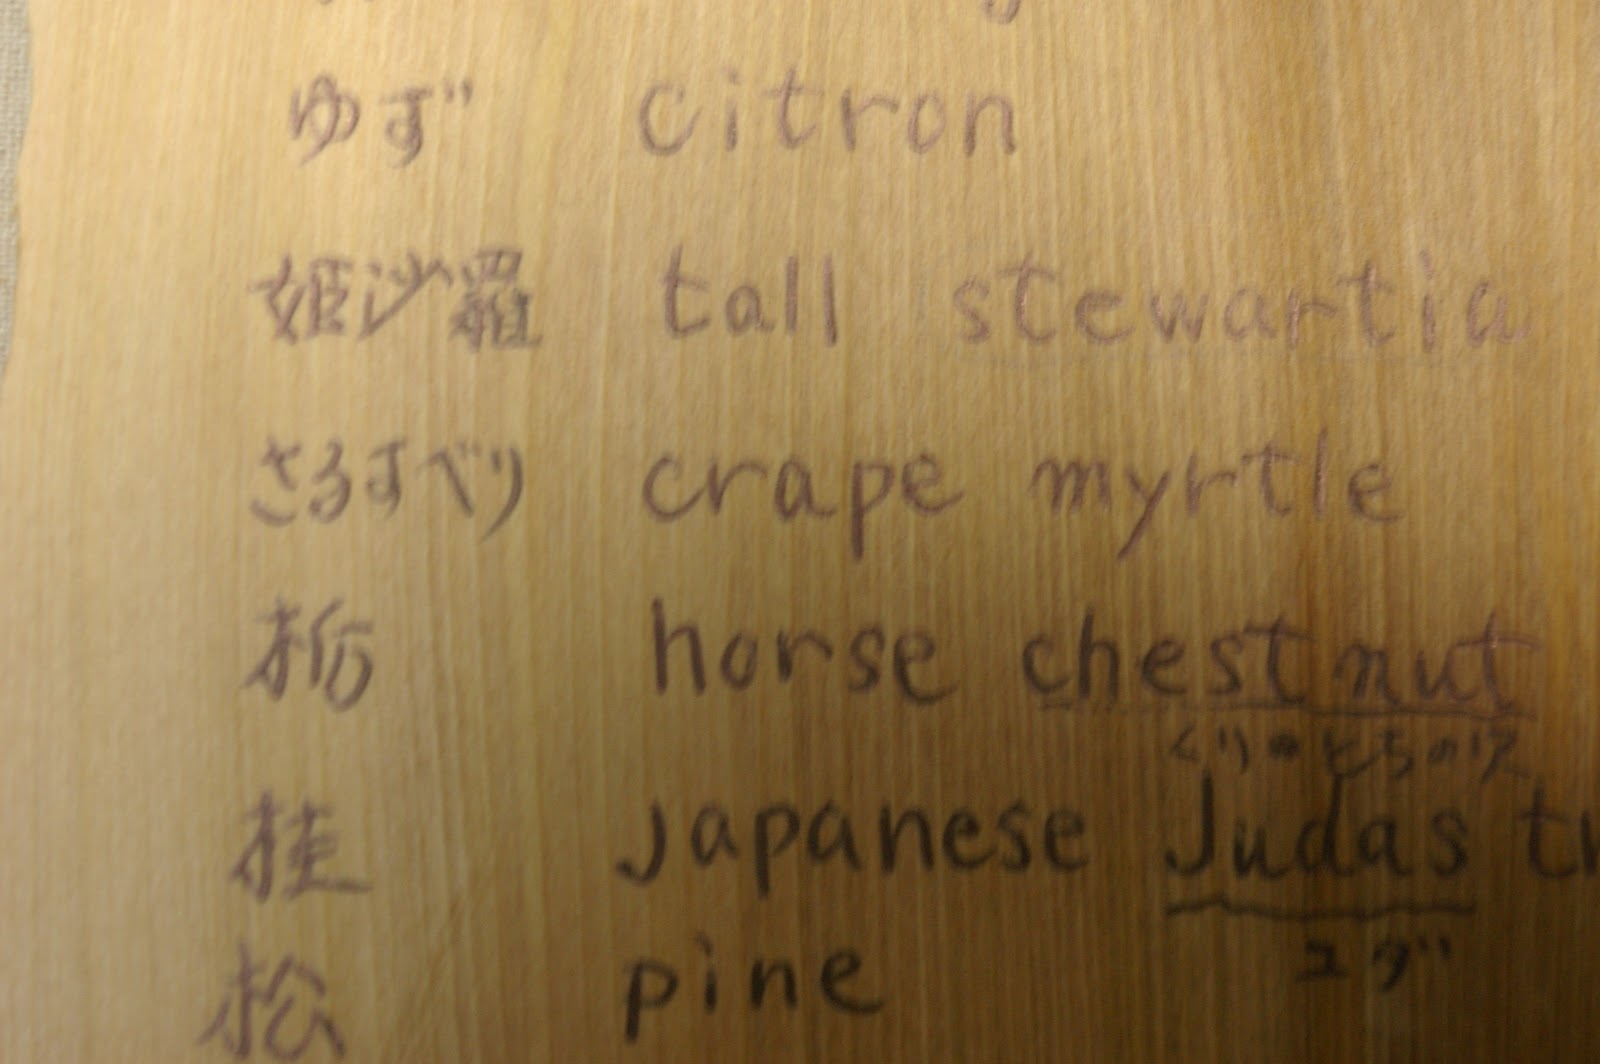 ゆず citron
姫沙羅 tall stewartia
さるすべり crape myrtle
栃 horse chestnut
くり の とちの
桂 Japanese Judas
ユダ
松 pine